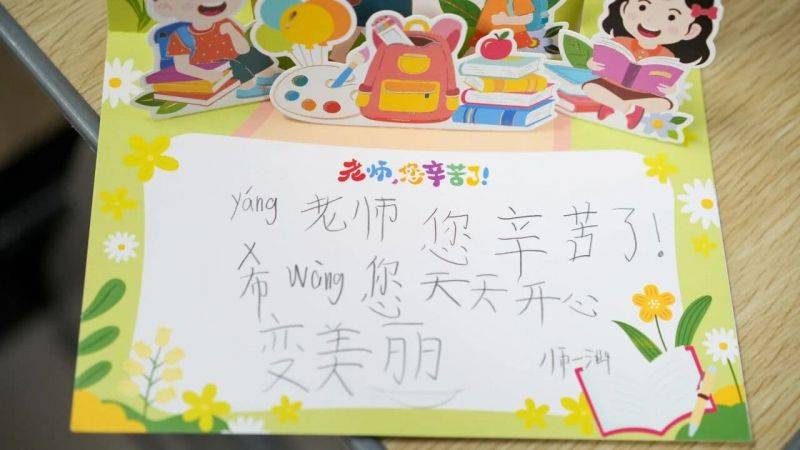 老师，您辛苦了!
yáng 老师 您 辛苦了!
希 wàng 您 天天开心
变美丽